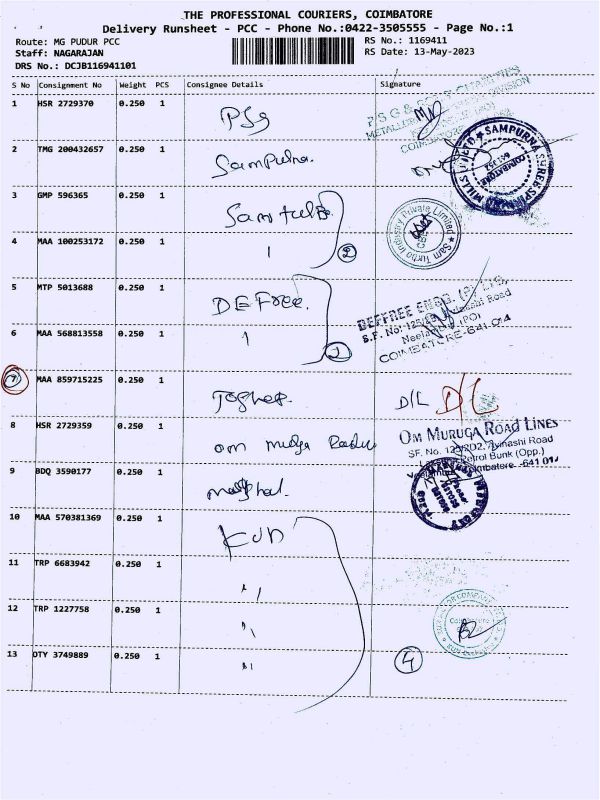 THE PROFESSIONAL COURIERS, COIMBATORE
Delivery Runsheet - PCC - Phone No.:0422-3505555 - Page No.:1
Route: MG PUDUR PCC
RS No.: 1169411
Staff: NAGARAJAN
RS Date: 13-May-2023
DRS No.: DCJB116941101
S No Consignment No Weight PCS Consignee Details Signature
1 HSR 2729370 0.250 1 PSG
2 TMG 200432657 0.250 1 Sampurna.
3 GMP 596365 0.250 1
4 MAA 100253172 0.250 1 2
5 MTP 5013688 0.250 1 DEFree.
6 MAA 568813558 0.250 1 2
7 MAA 859715225 0.250 1 D/L D/L
8 HSR 2729359 0.250 1 om
9 BDQ 3590177 0.250 1
10 MAA 570381369 0.250 1 KUN
11 TRP 6683942 0.250 1 "
12 TRP 1227758 0.250 1 "
13 OTY 3749889 0.250 1 " 4
SAMPURNA SHREE
MILLS
COIMBATORE
Sam Turbo Industry Private Limited
DEFFREE ENGG. (P) LTD,
S.F. No: Avinashi Road
COIMBATORE-641 014
OM MURUGA ROAD LINES
SF. No. Avinashi Road
Petrol Bunk (Opp.)
Coimbatore -641 014